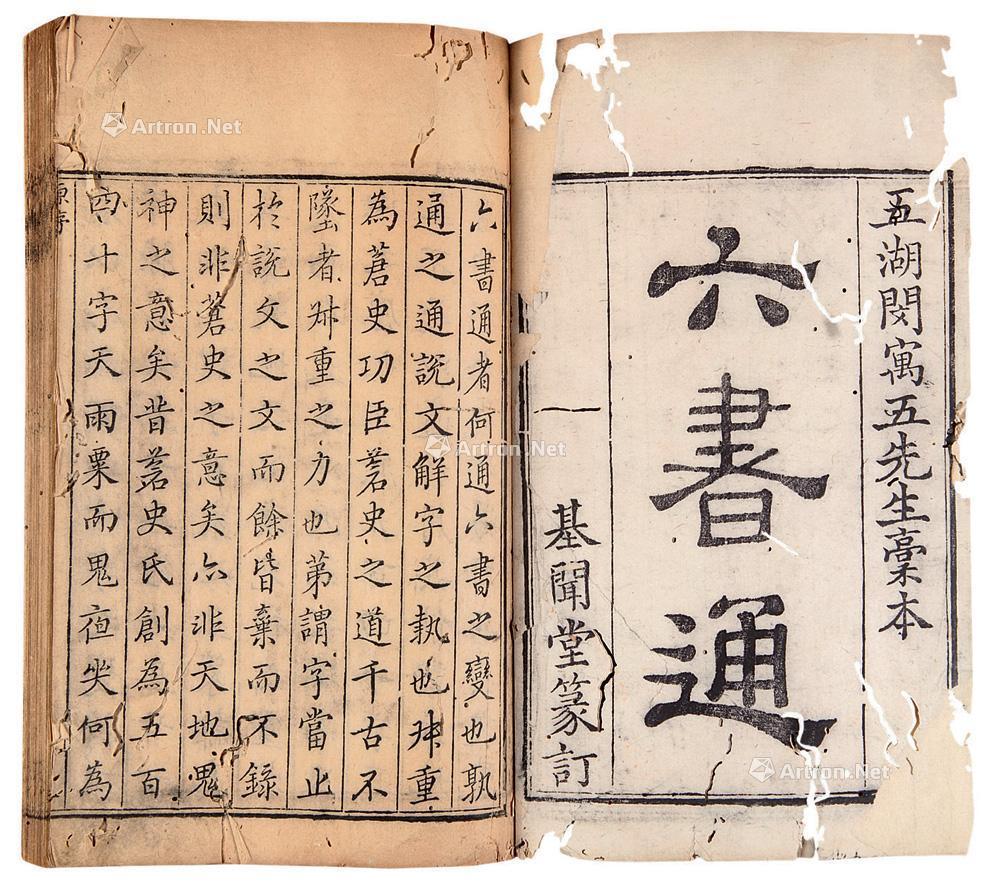 五湖閔寓五先生稾本
六書通
基聞堂篆訂
六書通者何通六書之變也孰
通之通說文解字之執也尗重
為蒼史功臣蒼史之道千古不
墜者尗重之力也第謂字當止
於說文之文而餘皆棄而不錄
則非蒼史之意矣亦非天地鬼
神之意矣昔蒼史氏創為五百
四十字天雨粟而鬼夜哭何為
原序
Artron.Net
Artron.Net
Artron.Net